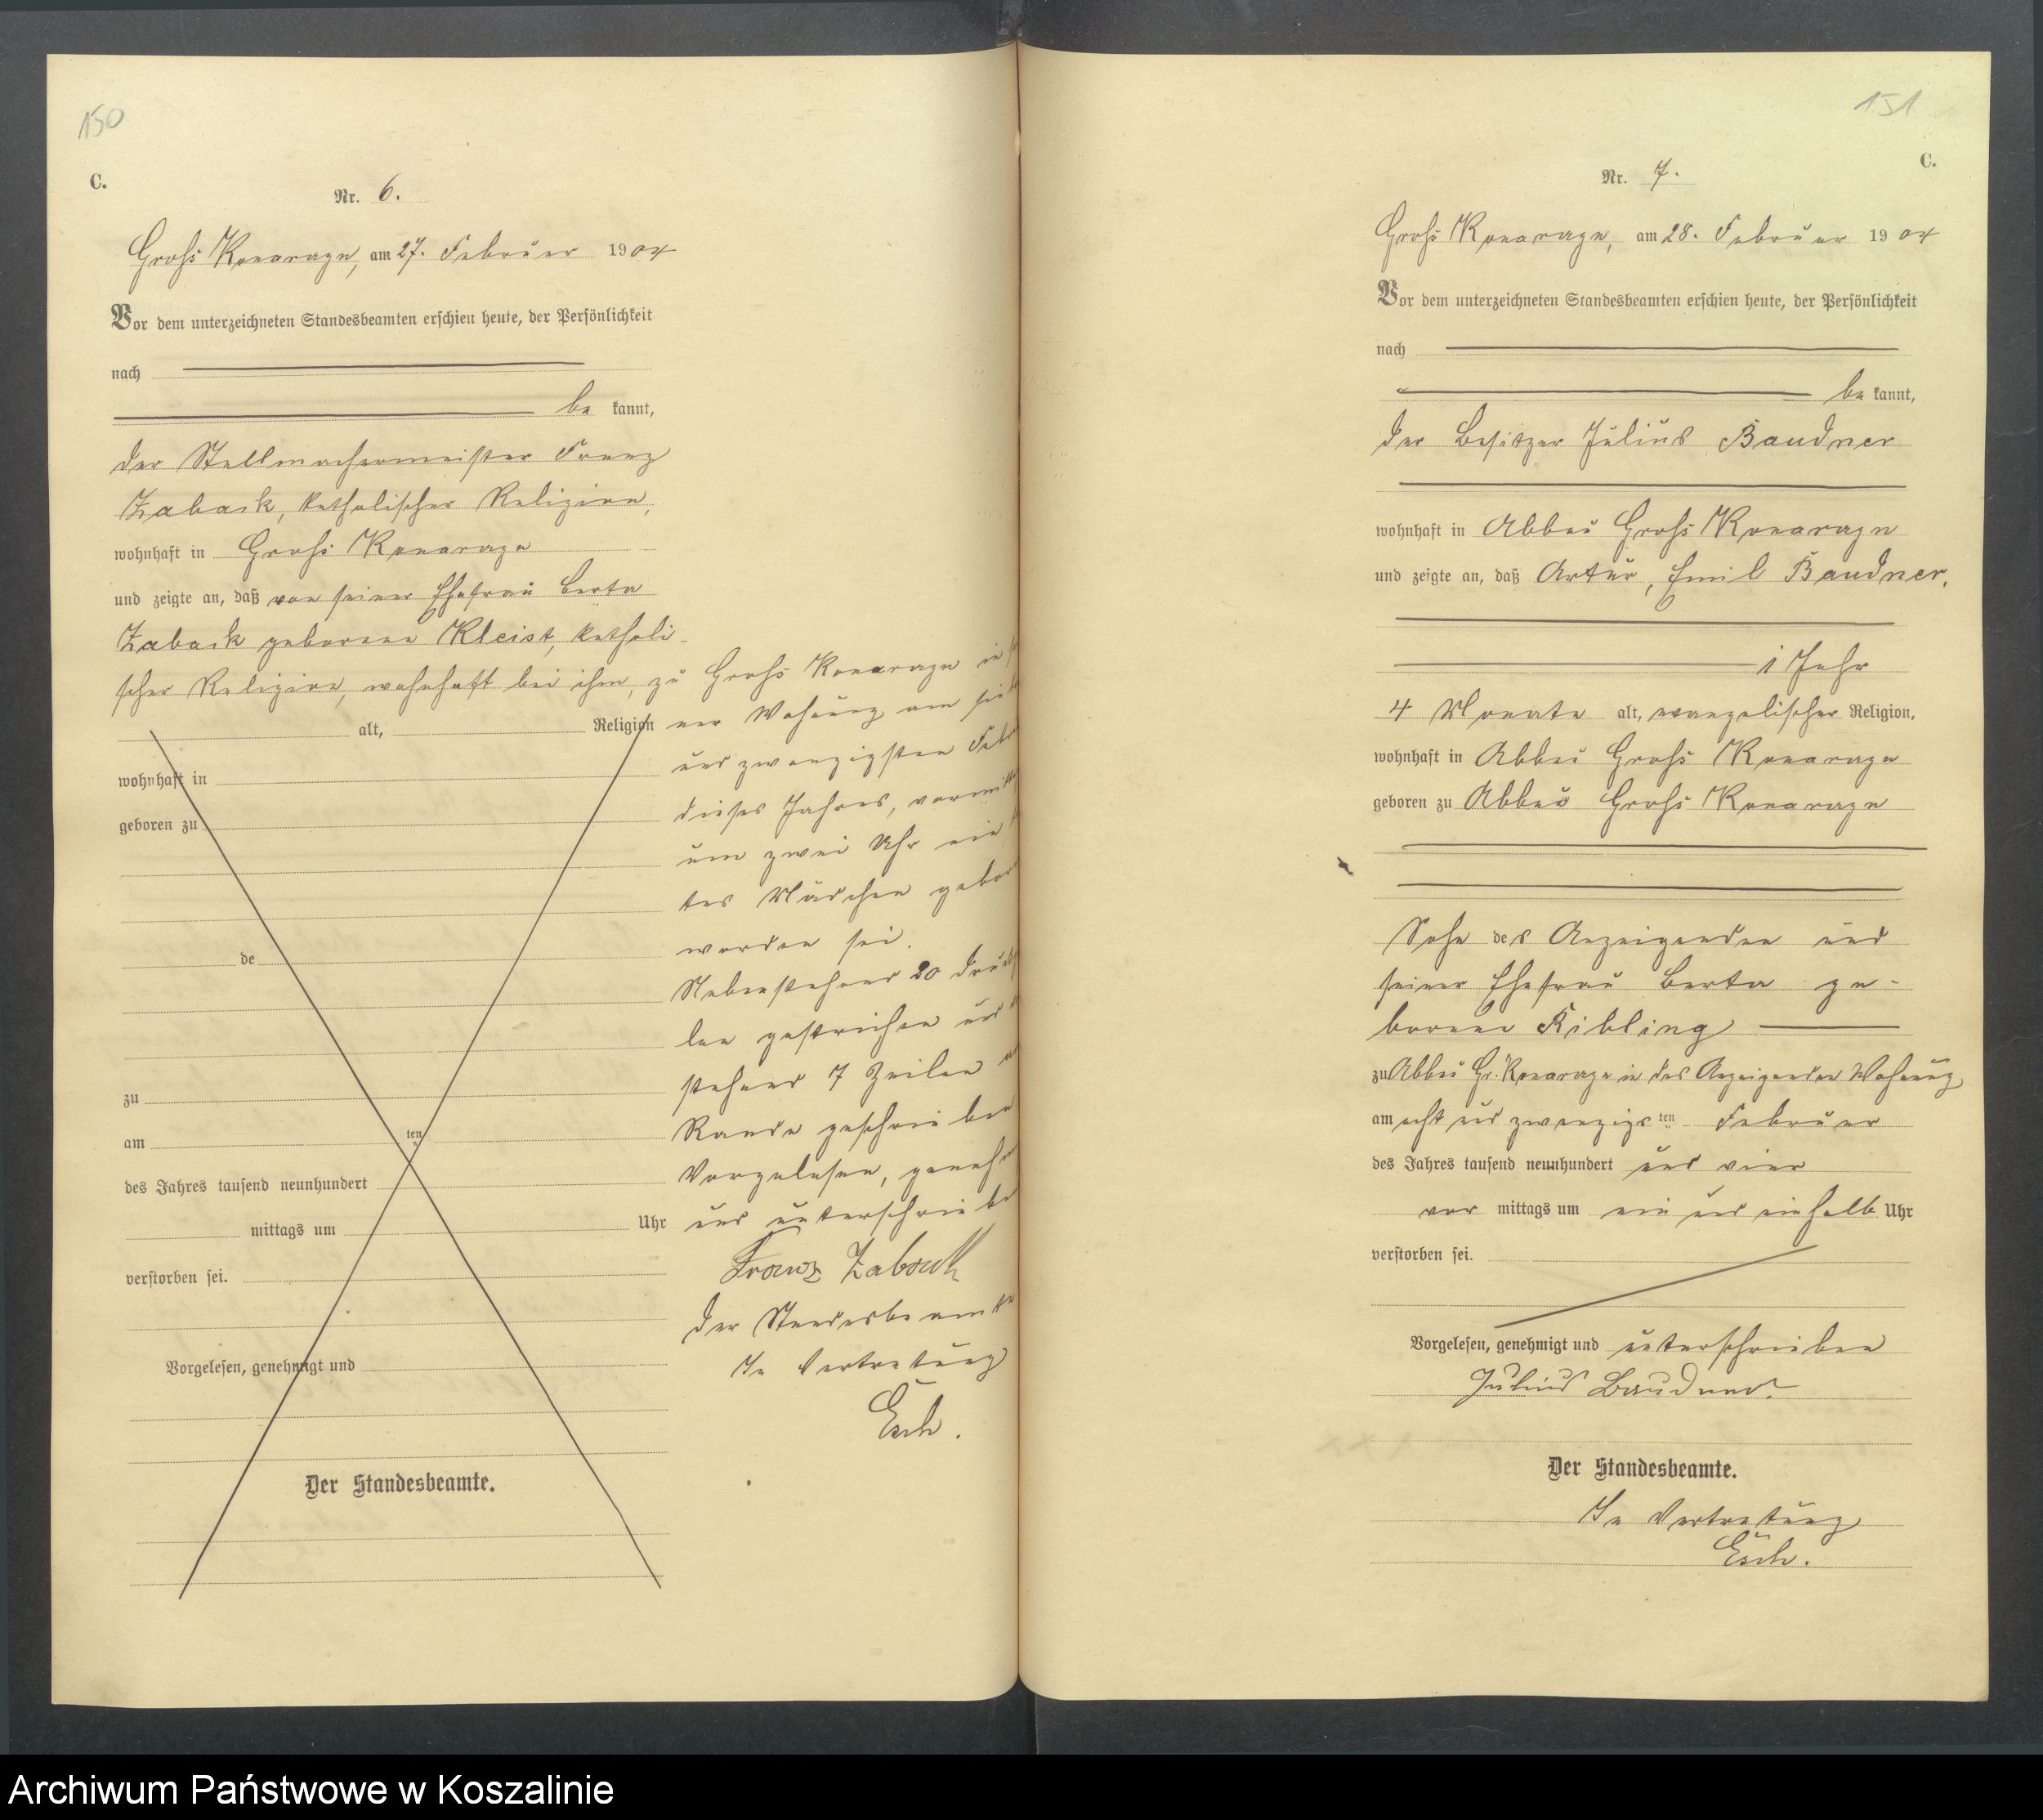 150
C.
Nr. 6.
Groß Konarzyn, am 27. Februar 1904
Vor dem unterzeichneten Standesbeamten erschien heute, der Persönlichkeit
nach
be kannt,
der Stellmachermeister Franz
Zabask, katholischer Religion,
wohnhaft in Groß Konarzyn
und zeigte an, daß von seiner Ehefrau Berta
Zabask geborene Kleist, katholi-
scher Religion, wohnhaft bei ihm, zu Groß Konarzyn in
alt, Religion
wohnhaft in
geboren zu
de
zu
am ten
des Jahres tausend neunhundert
mittags um Uhr
verstorben sei.
Vorgelesen, genehmigt und
Der Standesbeamte.
ner Wohnung am
und zwanzigsten
dieses Jahres,
um zwei Uhr ein
tes Mädchen
worden sei.
Nebenstehend 20
len gestrichen und
stehend 7 Zeilen
Rande geschrieben
Vorgelesen,
und
Franz
Der Standesbeamte
In Vertretung
Esch.
151
C.
Nr. 7.
Groß Konarzyn, am 28. Februar 1904
Vor dem unterzeichneten Standesbeamten erschien heute, der Persönlichkeit
nach
be kannt,
der Besitzer Julius Baudner
wohnhaft in Abbau Groß Konarzyn
und zeigte an, daß Artur, Emil Baudner,
1 Jahr
4 Monate alt, evangelischer Religion,
wohnhaft in Abbau Groß Konarzyn
geboren zu Abbau Groß Konarzyn
Sohn des Anzeigenden und
seiner Ehefrau Berta ge-
borenen Kibling
zu Abbau Gr. Konarzyn in des Anzeigenden Wohnung
am acht und zwanzigs ten Februar
des Jahres tausend neunhundert und vier
vor mittags um ein und ein halb Uhr
verstorben sei.
Vorgelesen, genehmigt und unterschrieben
Julius Baudner.
Der Standesbeamte.
In Vertretung
Esch.
Archiwum Państwowe w Koszalinie